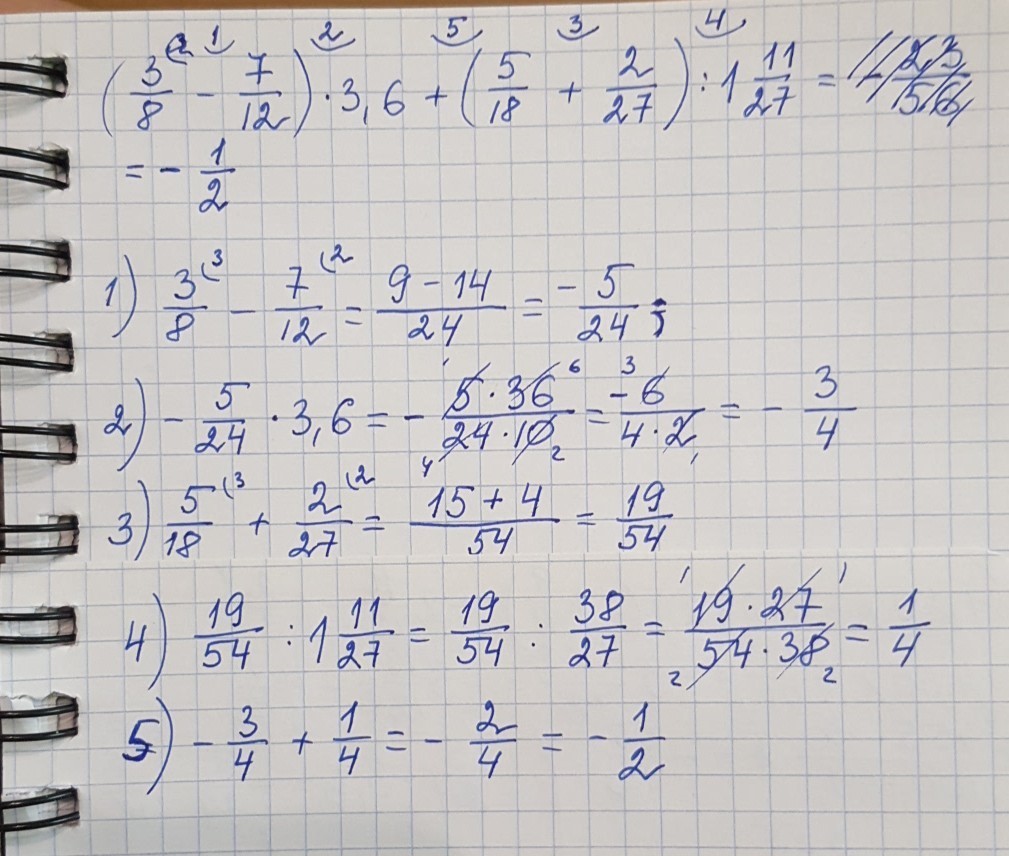 1 2 5 3 4
(3/8 - 7/12) · 3,6 + (5/18 + 2/27) : 1 11/27 =
= - 1/2
1) 3/8 (3 - 7/12 (2 = (9 - 14)/24 = - 5/24 ;
2) - 5/24 · 3,6 = - (5 · 36 6)/(24 4 · 10 2) = (- 6 3)/(4 · 2 1) = - 3/4
3) 5/18 (3 + 2/27 (2 = (15 + 4)/54 = 19/54
4) 19/54 : 1 11/27 = 19/54 : 38/27 = (1 19 · 27 1)/(2 54 · 38 2) = 1/4
5) - 3/4 + 1/4 = - 2/4 = - 1/2